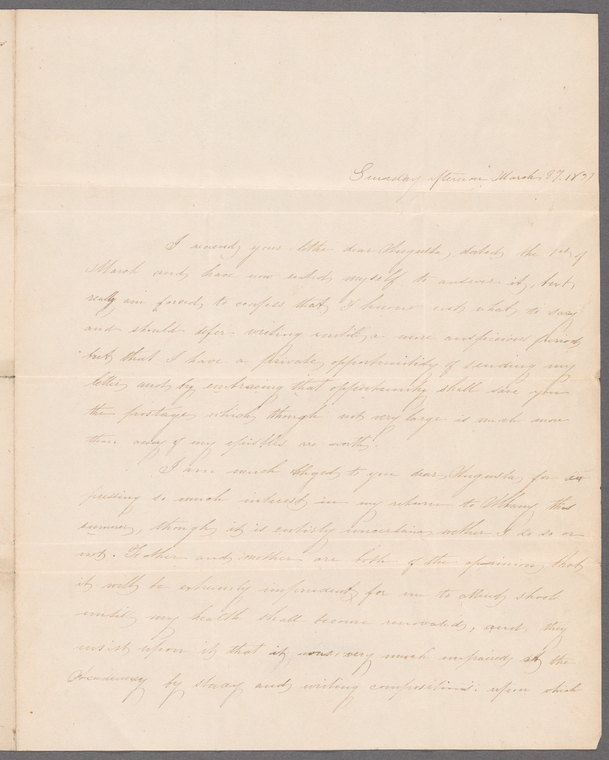 Sunday afternoon March 27. 183
I received your letter dear Augusta, dated the 1st of
March and have now seated myself to answer it, but
really am forced to confess that I know not what to say
and should defer writing until a more auspicious period,
but that I have a private opportunity of sending my
letter and by embracing that opportunity shall save you
the postage which though not very large is much more
than any of my epistles are worth.
I am much obliged to you dear Augusta, for ex
pressing so much interest in my return to Albany this
summer, though it is entirely uncertain, whether I do so or
not. Father and mother are both of the opinion, that
it will be extremely imprudent for me to attend school
until my health shall become renovated, and they
insist upon it, that it was very much impaired at the
Academy by study and writing compositions. upon which